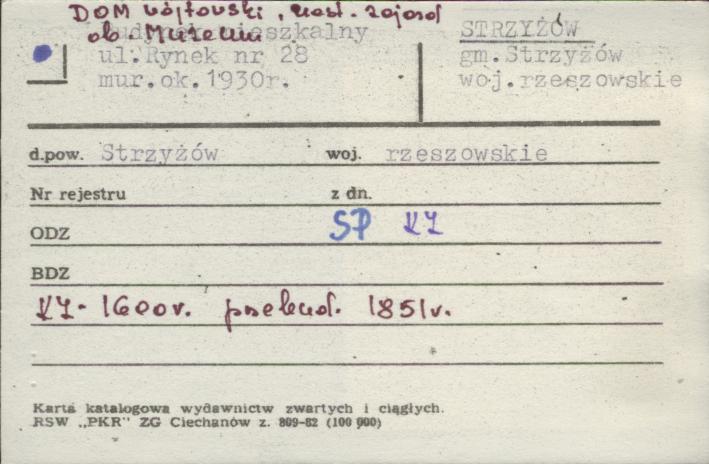 DOM wójtowski, nast. zajazd
ob Muzeum
budynek mieszkalny
ul.Rynek nr 28
mur.ok.1930r.
STRZYŻÓW
gm.Strzyżów
woj.rzeszowskie
d.pow. Strzyżów woj. rzeszowskie
Nr rejestru z dn.
ODZ SP KZ
BDZ
KZ - 1600r. przebud. 1851r.
Karta katalogowa wydawnictw zwartych i ciągłych.
RSW „PKR" ZG Ciechanów z. 809-82 (100 000)